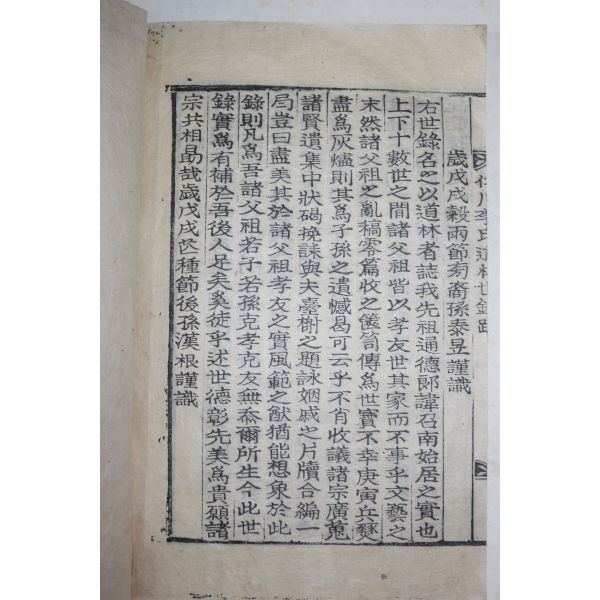 仁川李氏道林世錄跋
歲戊戌穀雨節旁裔孫泰昱謹識
右世錄名之以道林者誌我先祖通德郞諱召南始居之實也
上下十數世之間諸父祖皆以孝友世其家而不事乎文藝之
末然諸父祖之亂稿零篇收之篋笥傳爲世寶不幸庚寅兵燹
盡爲灰燼則其爲子孫之遺憾曷可云乎不肖收議諸宗廣蒐
諸賢遺集中狀碣挽誄與夫臺榭之題詠姻戚之片牘合編一
局豈曰盡美其於諸父祖孝友之實風範之猷猶能想象於此
錄則凡爲吾諸父祖若子若孫克孝克友無忝爾所生今此世
錄實爲有補於吾後人足矣奚徒乎述世德彰先美爲貴願諸
宗共相勗哉歲戊戌芒種節後孫漢根謹識